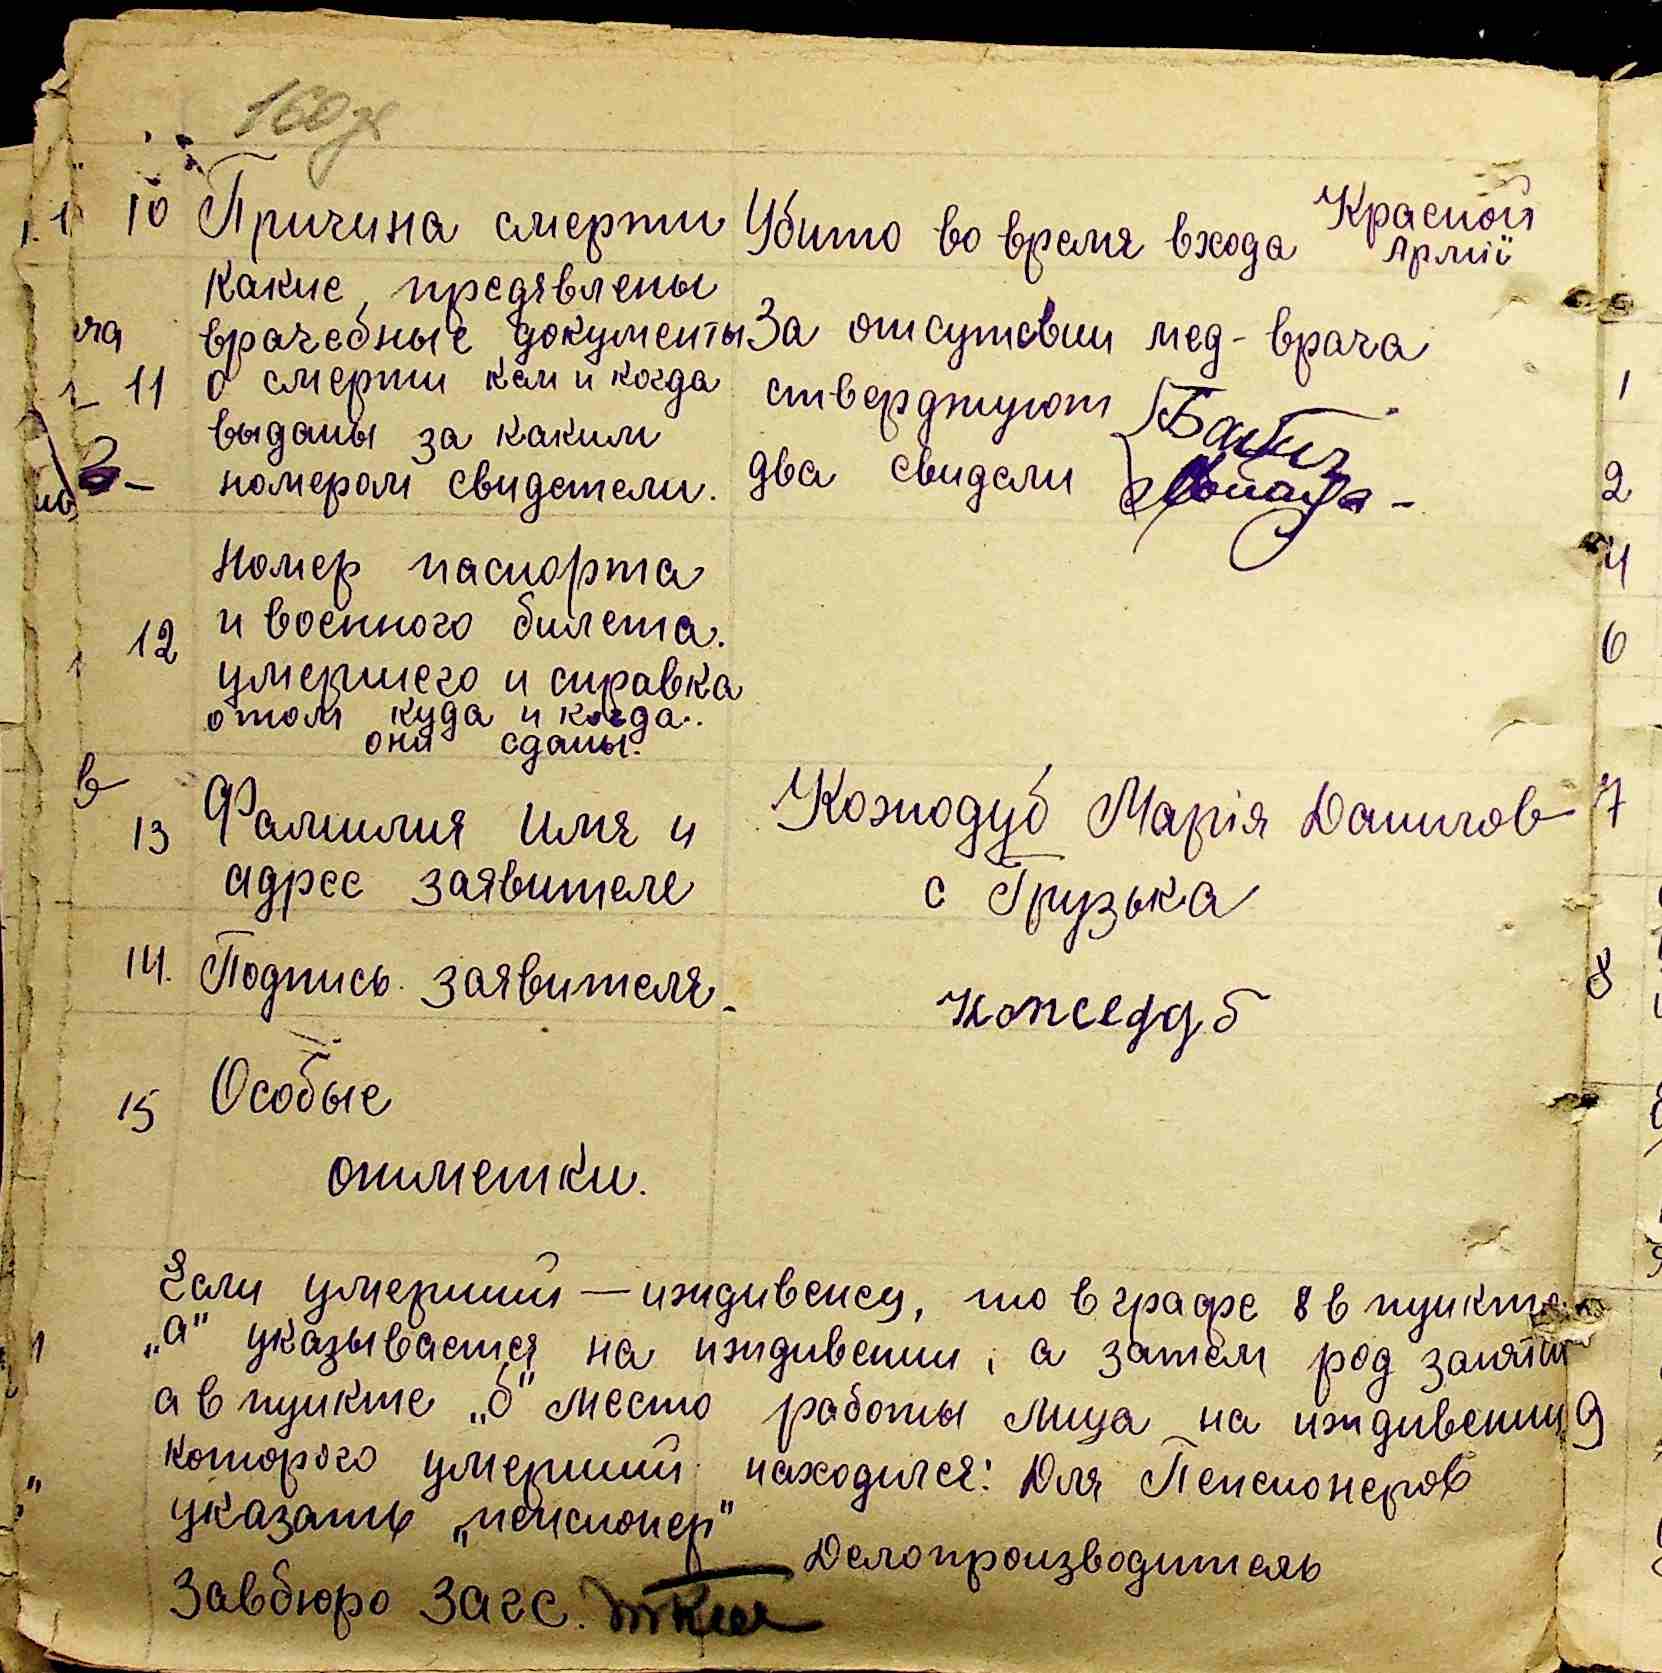 160 зв
10 Причина смерти Убито во время входа Красной
Армії
какие предявлены
врачебные документы За отсутсвии мед-врача
11 о смерти кем и когда стверджуют
выданы за каким
номером свидетели. два свидели
номер паспорта
12 и военного билета.
умершего и справка
о том куда и когда..
они сданы.
13 Фамилия Имя и Кожодуб Марія Данилов
адрес заявителе с Грузька
14. Подпись заявителя Кожедуб
15 Особые
отметки.
Если умерший — иждивенец, то в графе 8 в пункте
„а" указывается на иждивении, а затем род заняти
а в пункте „б" место работы лица на иждивении
которого умерший находился: Для Пенсионеров
указать „пенсионер"
Делопроизводитель
Завбюро Загс.
1
2
4
6
7
8
9